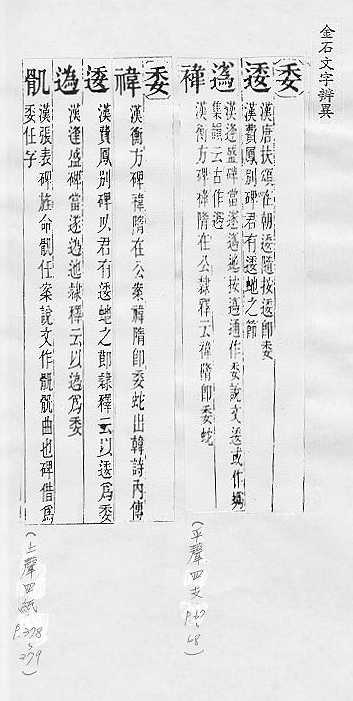 金石文字辨異
委
逶 漢唐扶頌在朝逶隨按逶即委
漢費鳳别碑君有逶虵之節
漢逢盛碑當遂逶迤按
通作委說文逶或作
集韻云古作
褘 漢衡方碑褘隋在公隸釋云褘隋即委蛇
(平聲四支 P.47~48)
委
褘 漢衡方碑褘隋在公案褘隋即委蛇出韓詩内傳
逶 漢費鳳别碑以君有逶虵之節隸釋云以逶爲委
漢逢盛碑當遂迤隸釋云以爲委
骩 漢張表碑旌命骩任案說文作骫骫曲也碑借爲
委任字
(上聲四紙 P.378~379)